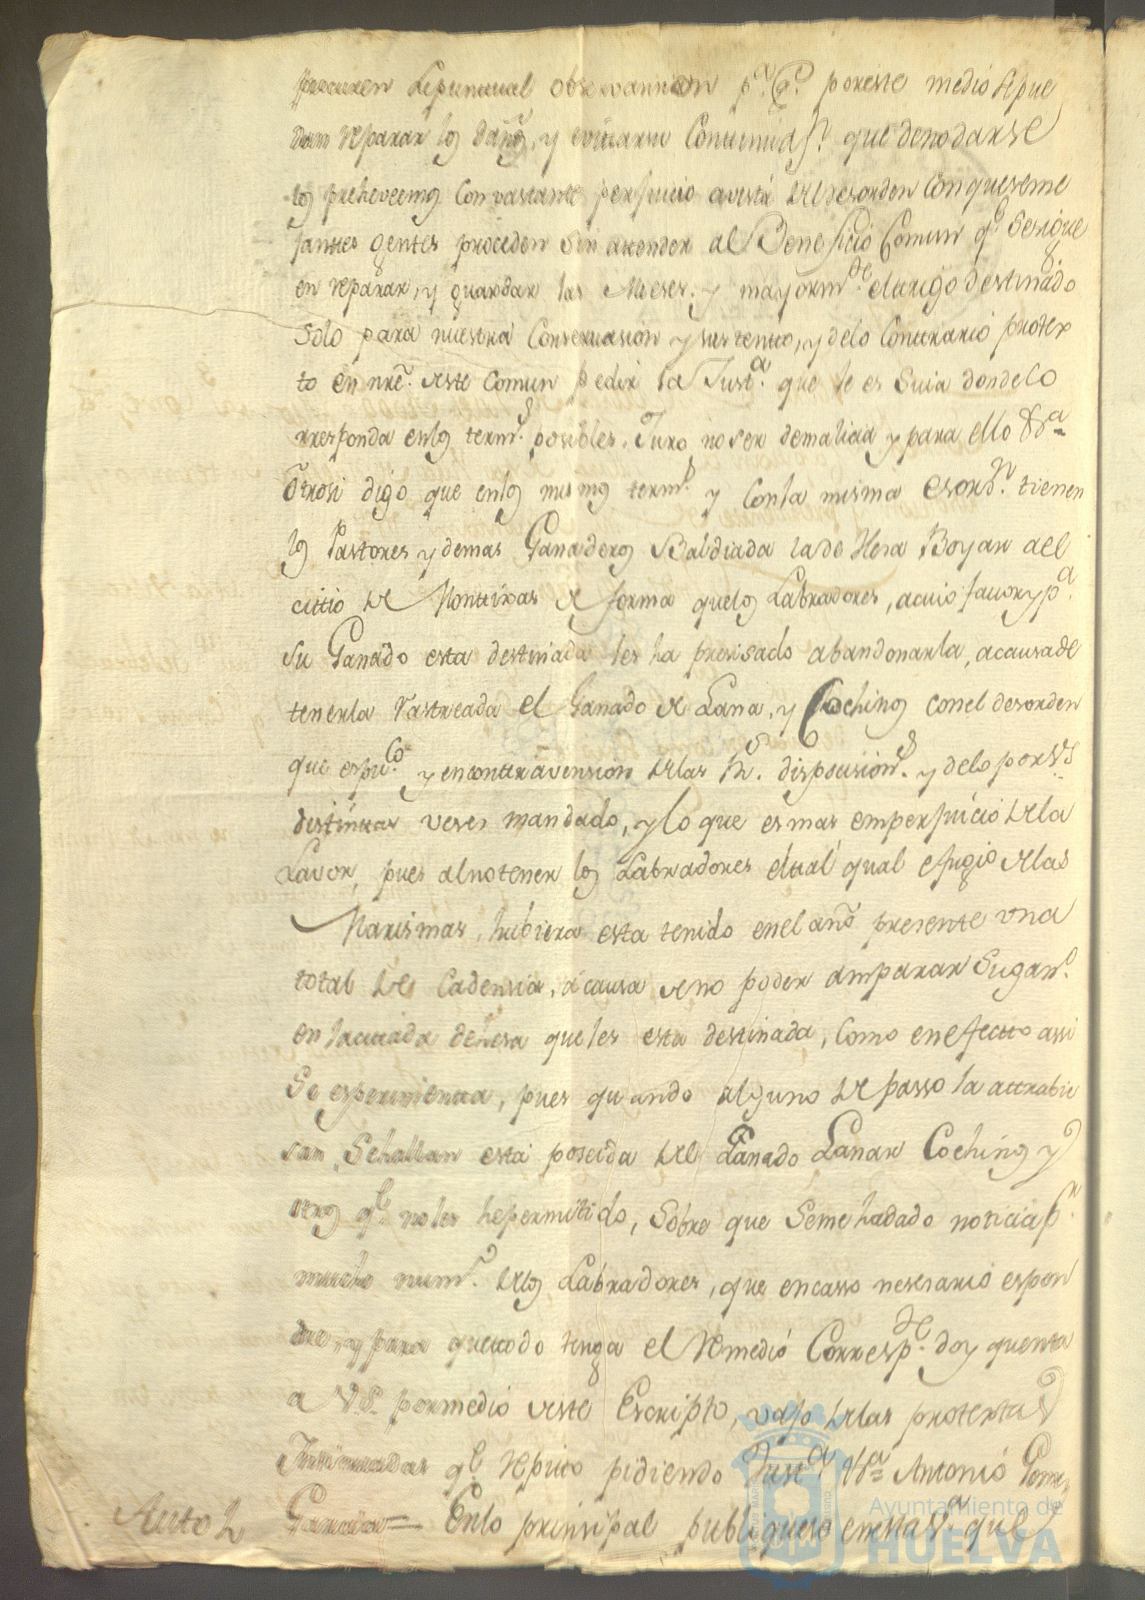 procuren la puntual observanzion p.a q.e por este medio se pue
dan reparar los daños, y evitarse Contiendas, que de no darse
los prehevemos Con vastante perjuicio avista del desorden Con que seme
jantes gentes proceden sin attender al Beneficio Comun q.e se sigue
en reparar, y guardar las Mieses. y mayorm.te el trigo destinado
solo para nuestra Conservasion y sustento, y delo Contrario protex
to en nre. deste Comun pedir la Just.a que le es suia donde Co
rresponda en los term.s posibles. Juro no ser de malicia y para ello &.a
Otrosi digo que en los mismos term.s y Con la misma desord.n tienen
los Pastores y demas Ganaderos Baldiada la de Hesa Boyar del
citio de Montixas de forma que los Labradores, a cuio favor y p.a
su Ganado esta destinada les ha presisado abandonarla, a causa de
tenerla rastreada el Ganado de Lana, y Cochinos con el desorden
que es pu.co y en contravension de las R.s disposision.s y de lo por V.S.
distintas veses mandado, y lo que es mas em perjuicio de la
Lavor, pues al no tener los Labradores el tal qual efugio de las
Marismas, hubiera esta tenido en el año presente una
total de Cadensia, a causa de no poder amparar su gan.o
en la citada dehesa que les esta destinada, Como en efecto assi
se esperimenta, pues quando alguno de passo la attrabie
san, se hallan está poseida del Ganado Lanar Cochinos y
otros q.e no les he permitido, sobre que se me ha dado noticia p.r
mucho num.o de los Labradores, que en casso nesesario espon
dre, y para que todo tenga el Remedio Corresp.te doy quenta
a V.S. por medio deste Escripto, vajo de las protextas
q.e repito pidiendo Just.a &.a Antonio Gome,
Auto 2 Garcia = En lo prinsipal publiquese en esta v.a que
Ayuntamiento de
HUELVA